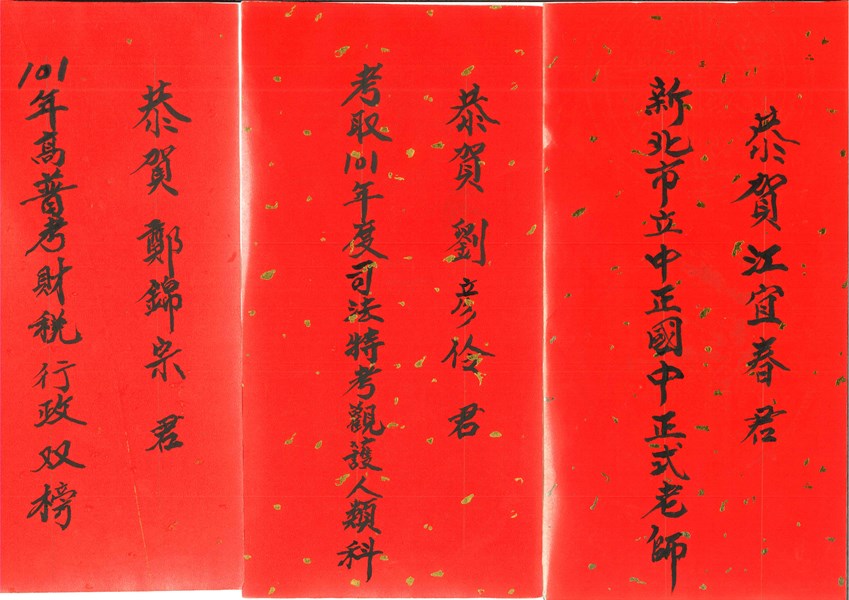 恭賀江宜春君
新北市立中正國中正式老師
恭賀劉彥伶君
考取101年度司法特考觀護人類科
恭賀鄭錦宗君
101年高普考財稅行政双榜